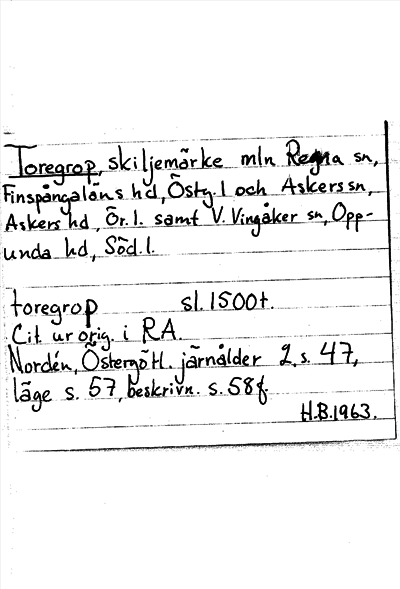 Toregrop, skiljemärke mln Regna sn,
Finspångaläns hd, Östg. l och Askers sn,
Askers hd, Ör. l. samt V. Vingåker sn, Opp-
unda hd, Söd. l.
toregrop sl. 1500t.
Cit. ur orig. i RA.
Nordén, Östergötl. järnålder 2, s. 47,
läge s. 57, beskrivn. s. 58 f.
H.B. 1963.